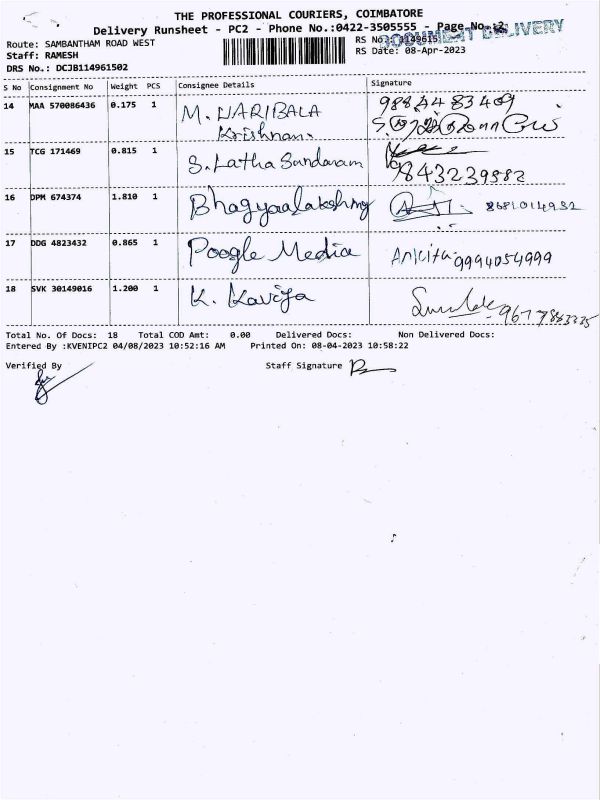 THE PROFESSIONAL COURIERS, COIMBATORE
Delivery Runsheet - PC2 - Phone No.:0422-3505555 - Page No.:2
DOCUMENT DELIVERY
Route: SAMBANTHAM ROAD WEST
RS No.:
Staff: RAMESH
RS Date: 08-Apr-2023
DRS No.: DCJB114961502
S No Consignment No Weight PCS Consignee Details Signature
14 MAA 570086436 0.175 1 M. HARIBALA
Krishnan.
15 TCG 171469 0.815 1 S. Latha Sundaram
9843239582
16 DPM 674374 1.810 1 Bhagyaalakshmy
17 DDG 4823432 0.865 1 Poogle Media Ankita 9994054999
18 SVK 30149016 1.200 1 K. Kaviya
Total No. Of Docs: 18 Total COD Amt: 0.00 Delivered Docs: Non Delivered Docs:
Entered By :KVENIPC2 04/08/2023 10:52:16 AM Printed On: 08-04-2023 10:58:22
Verified By Staff Signature